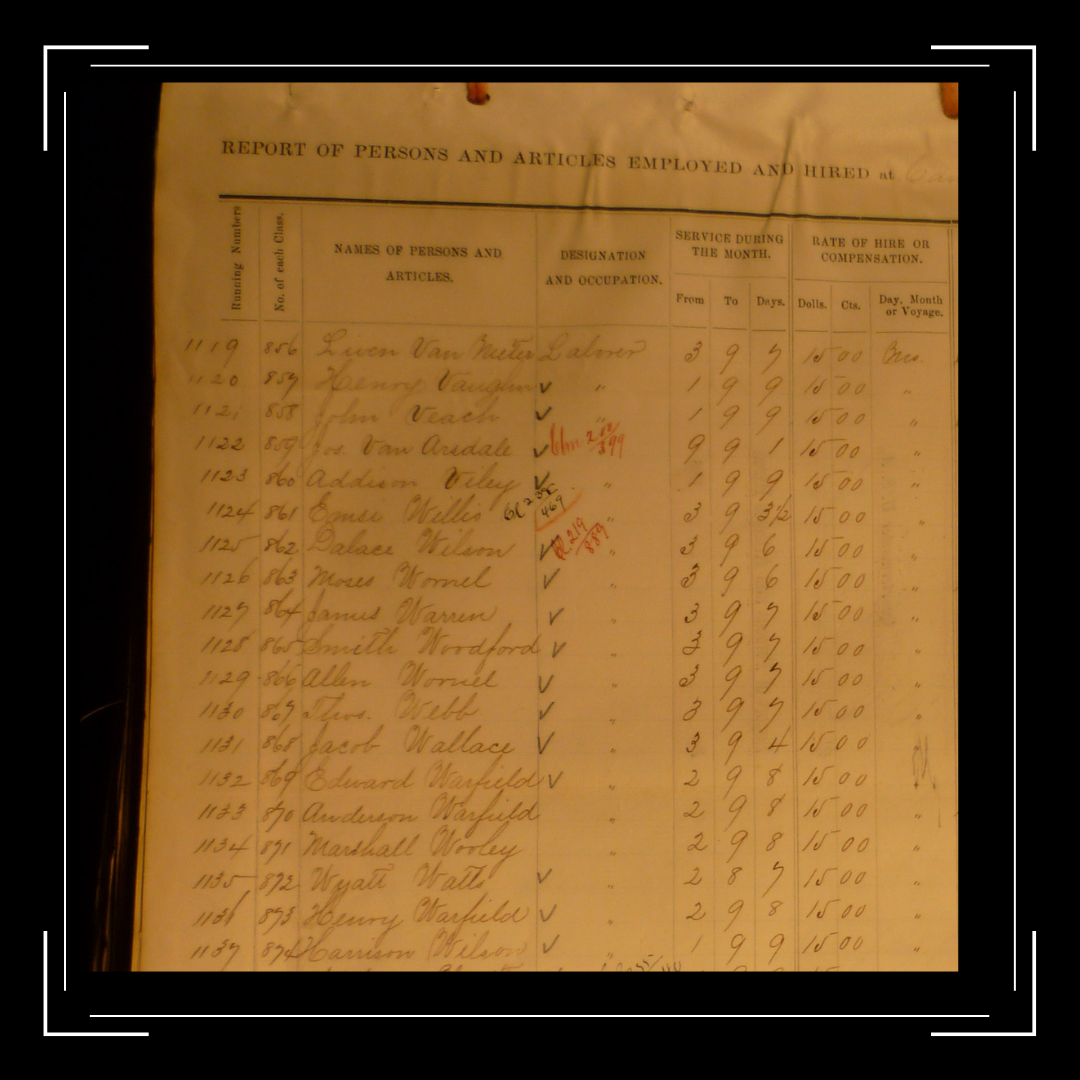 REPORT OF PERSONS AND ARTICLES EMPLOYED AND HIRED at
Running Numbers No. of each Class. NAMES OF PERSONS AND ARTICLES. DESIGNATION AND OCCUPATION. SERVICE DURING THE MONTH. RATE OF HIRE OR COMPENSATION.
From To Days. Dolls. Cts. Day, Month or Voyage.
1119 856 Van Meter Laborer 3 9 7 15 00 Mo.
1120 857 Henry Vaughn ✓ " 1 9 9 15 00 "
1121 858 John Veach ✓ " 1 9 9 15 00 "
1122 859 Jos. Van Arsdale ✓ 9 9 1 15 00 "
1123 860 Addison Viley ✓ " 1 9 9 15 00 "
1124 861 Willis " 3 9 3½ 15 00 "
1125 862 Dalace Wilson ✓ " 3 9 6 15 00 "
1126 863 Moses Wornel ✓ " 3 9 6 15 00 "
1127 864 James Warren ✓ " 3 9 7 15 00 "
1128 865 Smith Woodford ✓ " 3 9 7 15 00 "
1129 866 Allen Wornel ✓ " 3 9 7 15 00 "
1130 867 Thos. Webb ✓ " 3 9 7 15 00 "
1131 868 Jacob Wallace ✓ " 3 9 4 15 00 "
1132 869 Edward Warfield ✓ " 2 9 8 15 00 "
1133 870 Anderson Warfield " 2 9 8 15 00 "
1134 871 Marshall Wooley " 2 9 8 15 00 "
1135 872 Wyatt Watts ✓ " 2 8 7 15 00 "
1136 873 Henry Warfield ✓ " 2 9 8 15 00 "
1137 874 Harrison Wilson ✓ " 1 9 9 15 00 "